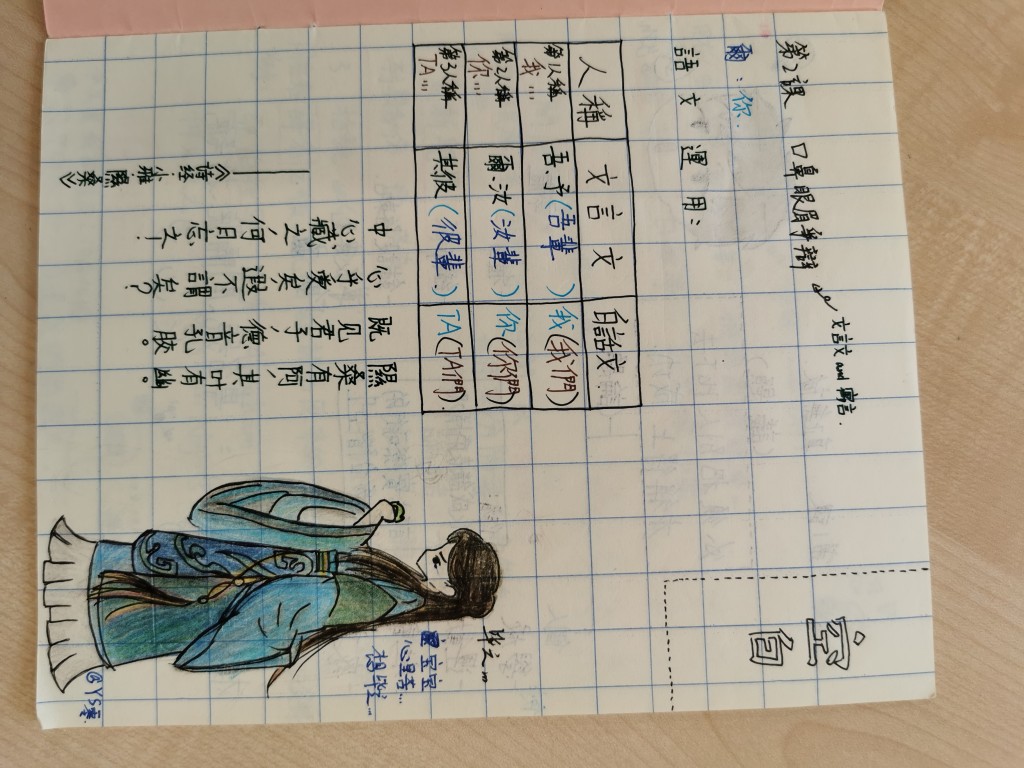 第2課 口鼻眼眉爭辯
文言文 and 寓言.
爾:你.
語文運用:
人稱 文言文 白話文
第1人稱 我... 吾、予(吾輩) 我(我們)
第2人稱 你... 爾、汝(汝輩) 你(你們)
第3人稱 TA... 其彼(彼輩) TA(TA們)
隰桑有阿,其叶有幽。
既见君子,德音孔胶。
心乎爱矣,遐不謂矣?
中心臧之,何日忘之!
——《诗经·小雅·隰桑》
空白
毕文...
宝宝
心里苦...
@YS